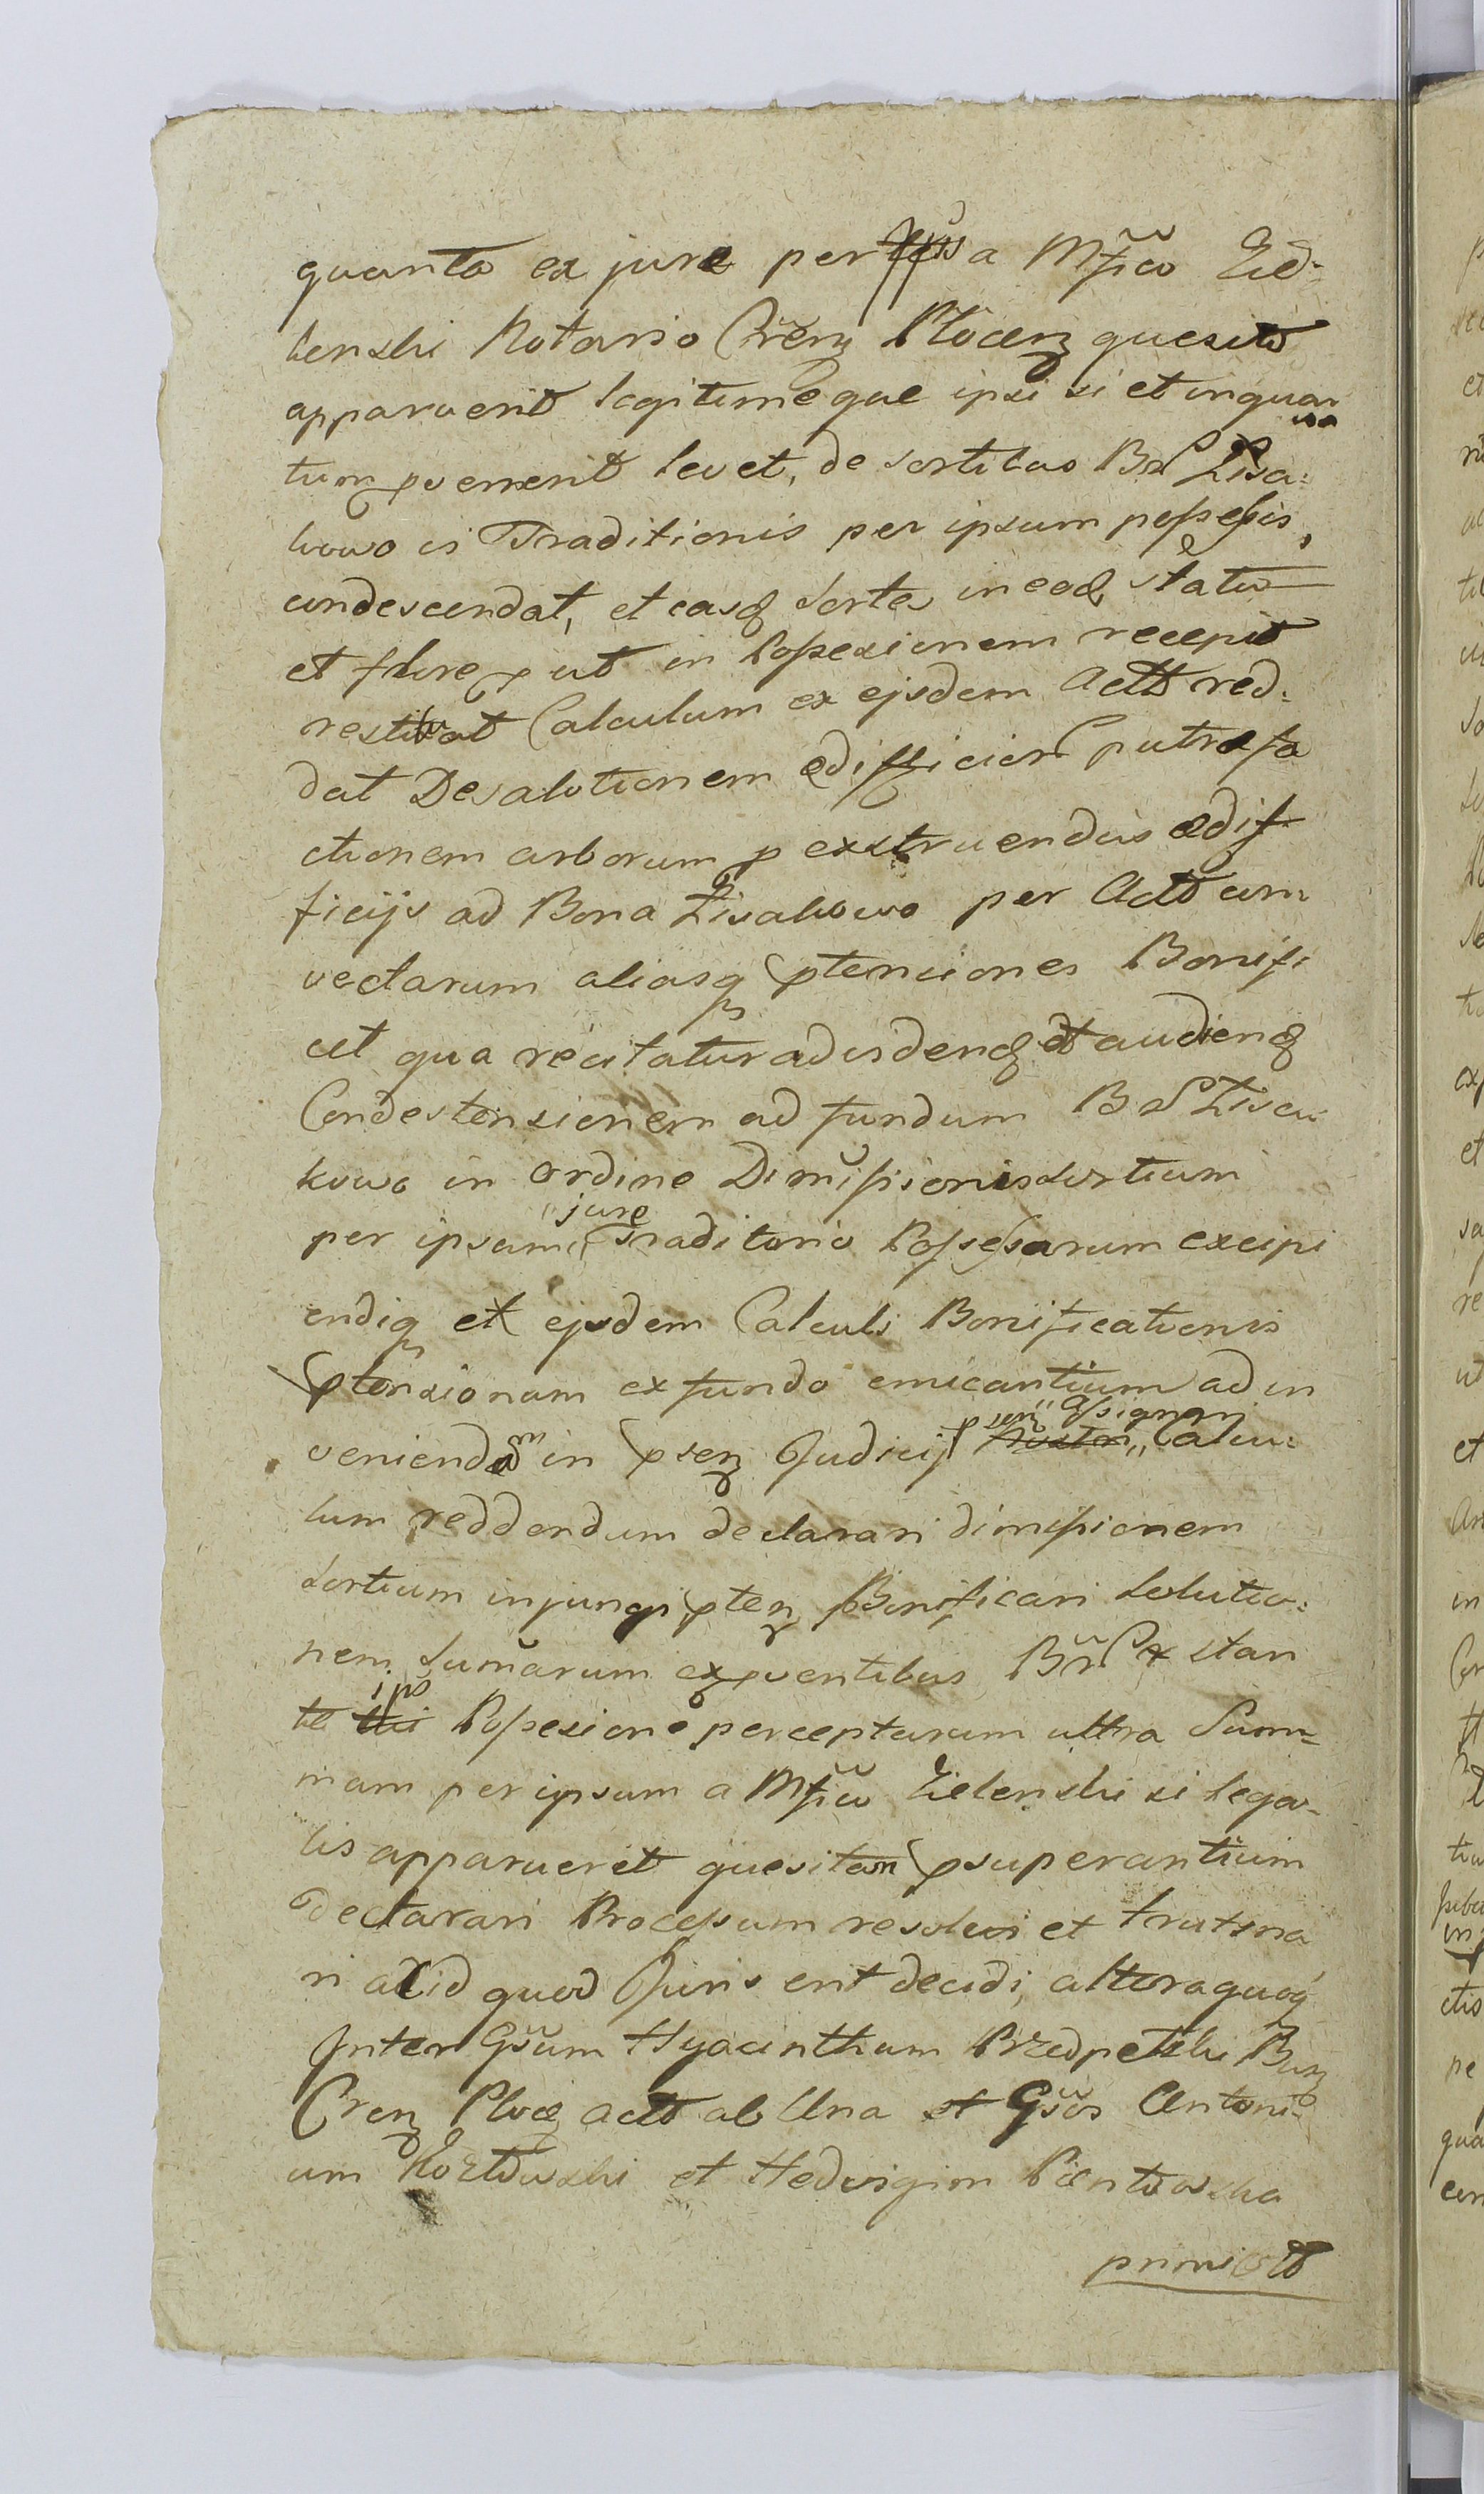 quanto ex jure per Ipsũ a Mfico Zie-
lenski Notario Crens Plocens quesito
apparuerit legitimeque ipsi si et inquan
tum pvenerit levet, de sortibus Br Lisa:
kowo is Traditionis per ipsum possessis,
condescendat, et easq sortes in eod statu
et flore put in Possesionem recepit
restituat Calculum ex ejsdem Actt red:
dat Desolationem edifficior putrefa
ctionem arborum p exstruendis ædif
ficijs ad Bona Lisakowo per Actt con
vectarum aliasq ptensiones Bonifi
cet qua recitatur ad vidend et audiend
Condestensionem ad fundum Br Lisa
kowo in ordine Dimissionis sortium
per ipsum jure Traditorio Possessarum excipi
endiq et ejsdem Calculi Bonificationis
ptensionum ex fundo emicantium ad in
veniendam in psens Judicijs Assignari Calcu:
lum reddendum declarari dimissionem
sortium injungi ptens Bonificari solutio:
nem sumarum ex pventibus Br ex stan
te Possesione perceptarum ultra Sum=
mam per ipsum a Mfico Zielenski si lega-
lis apparuerit quesitam psuperantium
declarari Processum resolvi et trutina
ri ac id quod Juris erit decidi, altera quoq
Inter Gsum Hyacinthum Przedpetski Bur
Crens Ploc actt ab Una et Gsos Antoni-
um Kozlowski et Hedvigim Pientowska
primi Ott